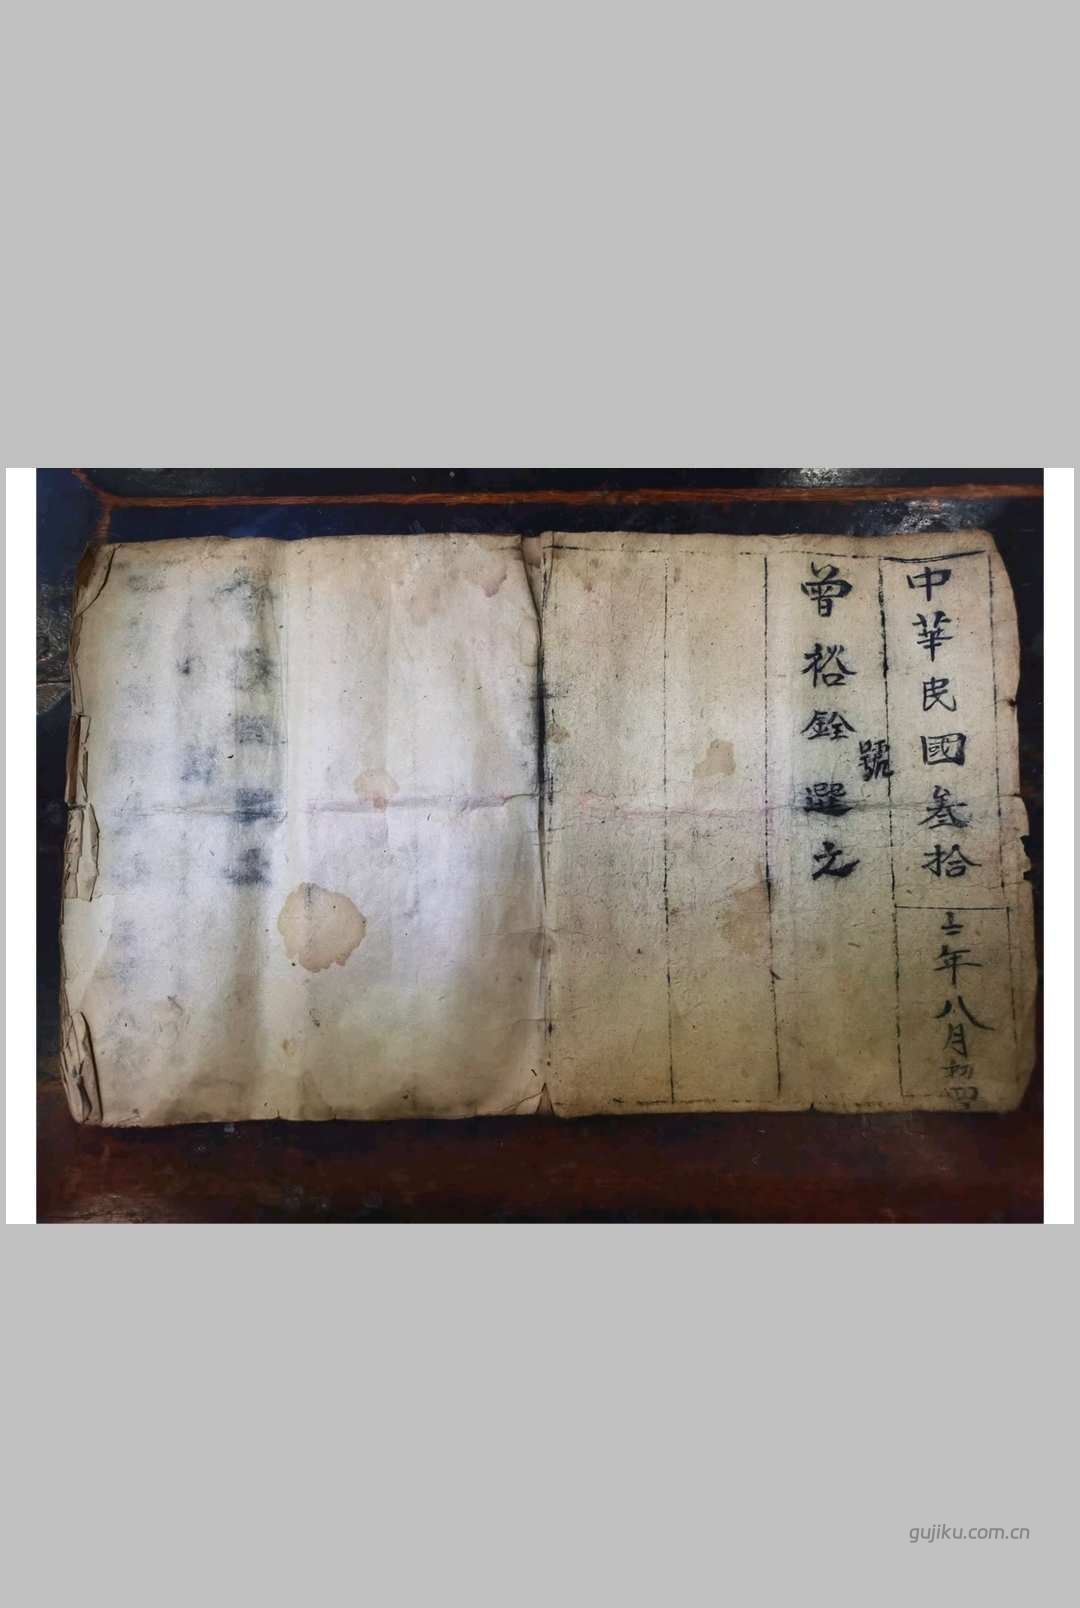 中華民國叁拾二年八月初四
曾裕銓號選之
gujiku.com.cn